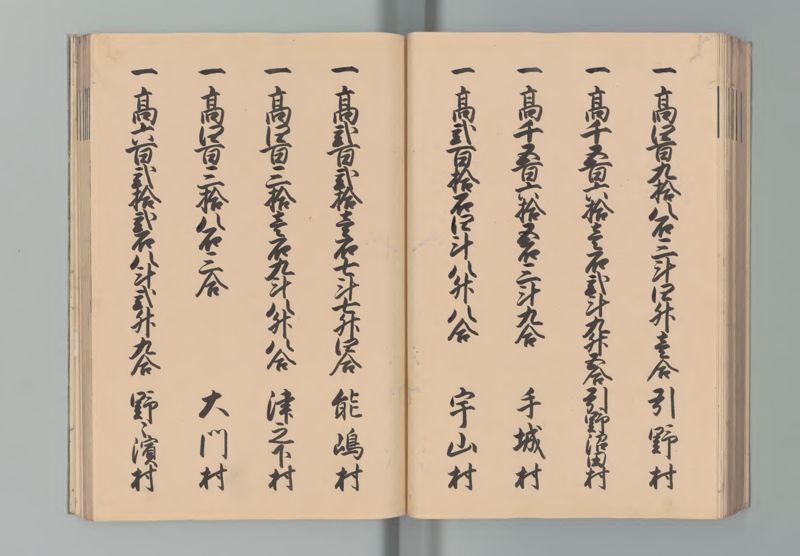 一 高四百九拾八石三斗四升壱合 引野村
一 高千五百六拾壱石弐斗九升五合 引野沼田村
一 高千五百六拾五石三斗九合 手城村
一 高弐百拾石四斗八升八合 宇山村
一 高弐百弐拾壱石七斗七升四合 能嶋村
一 高四百三拾壱石九斗八升八合 津之下村
一 高四百三拾八石三合 大門村
一 高六百弐拾弐石八斗弐升九合 野々濱村